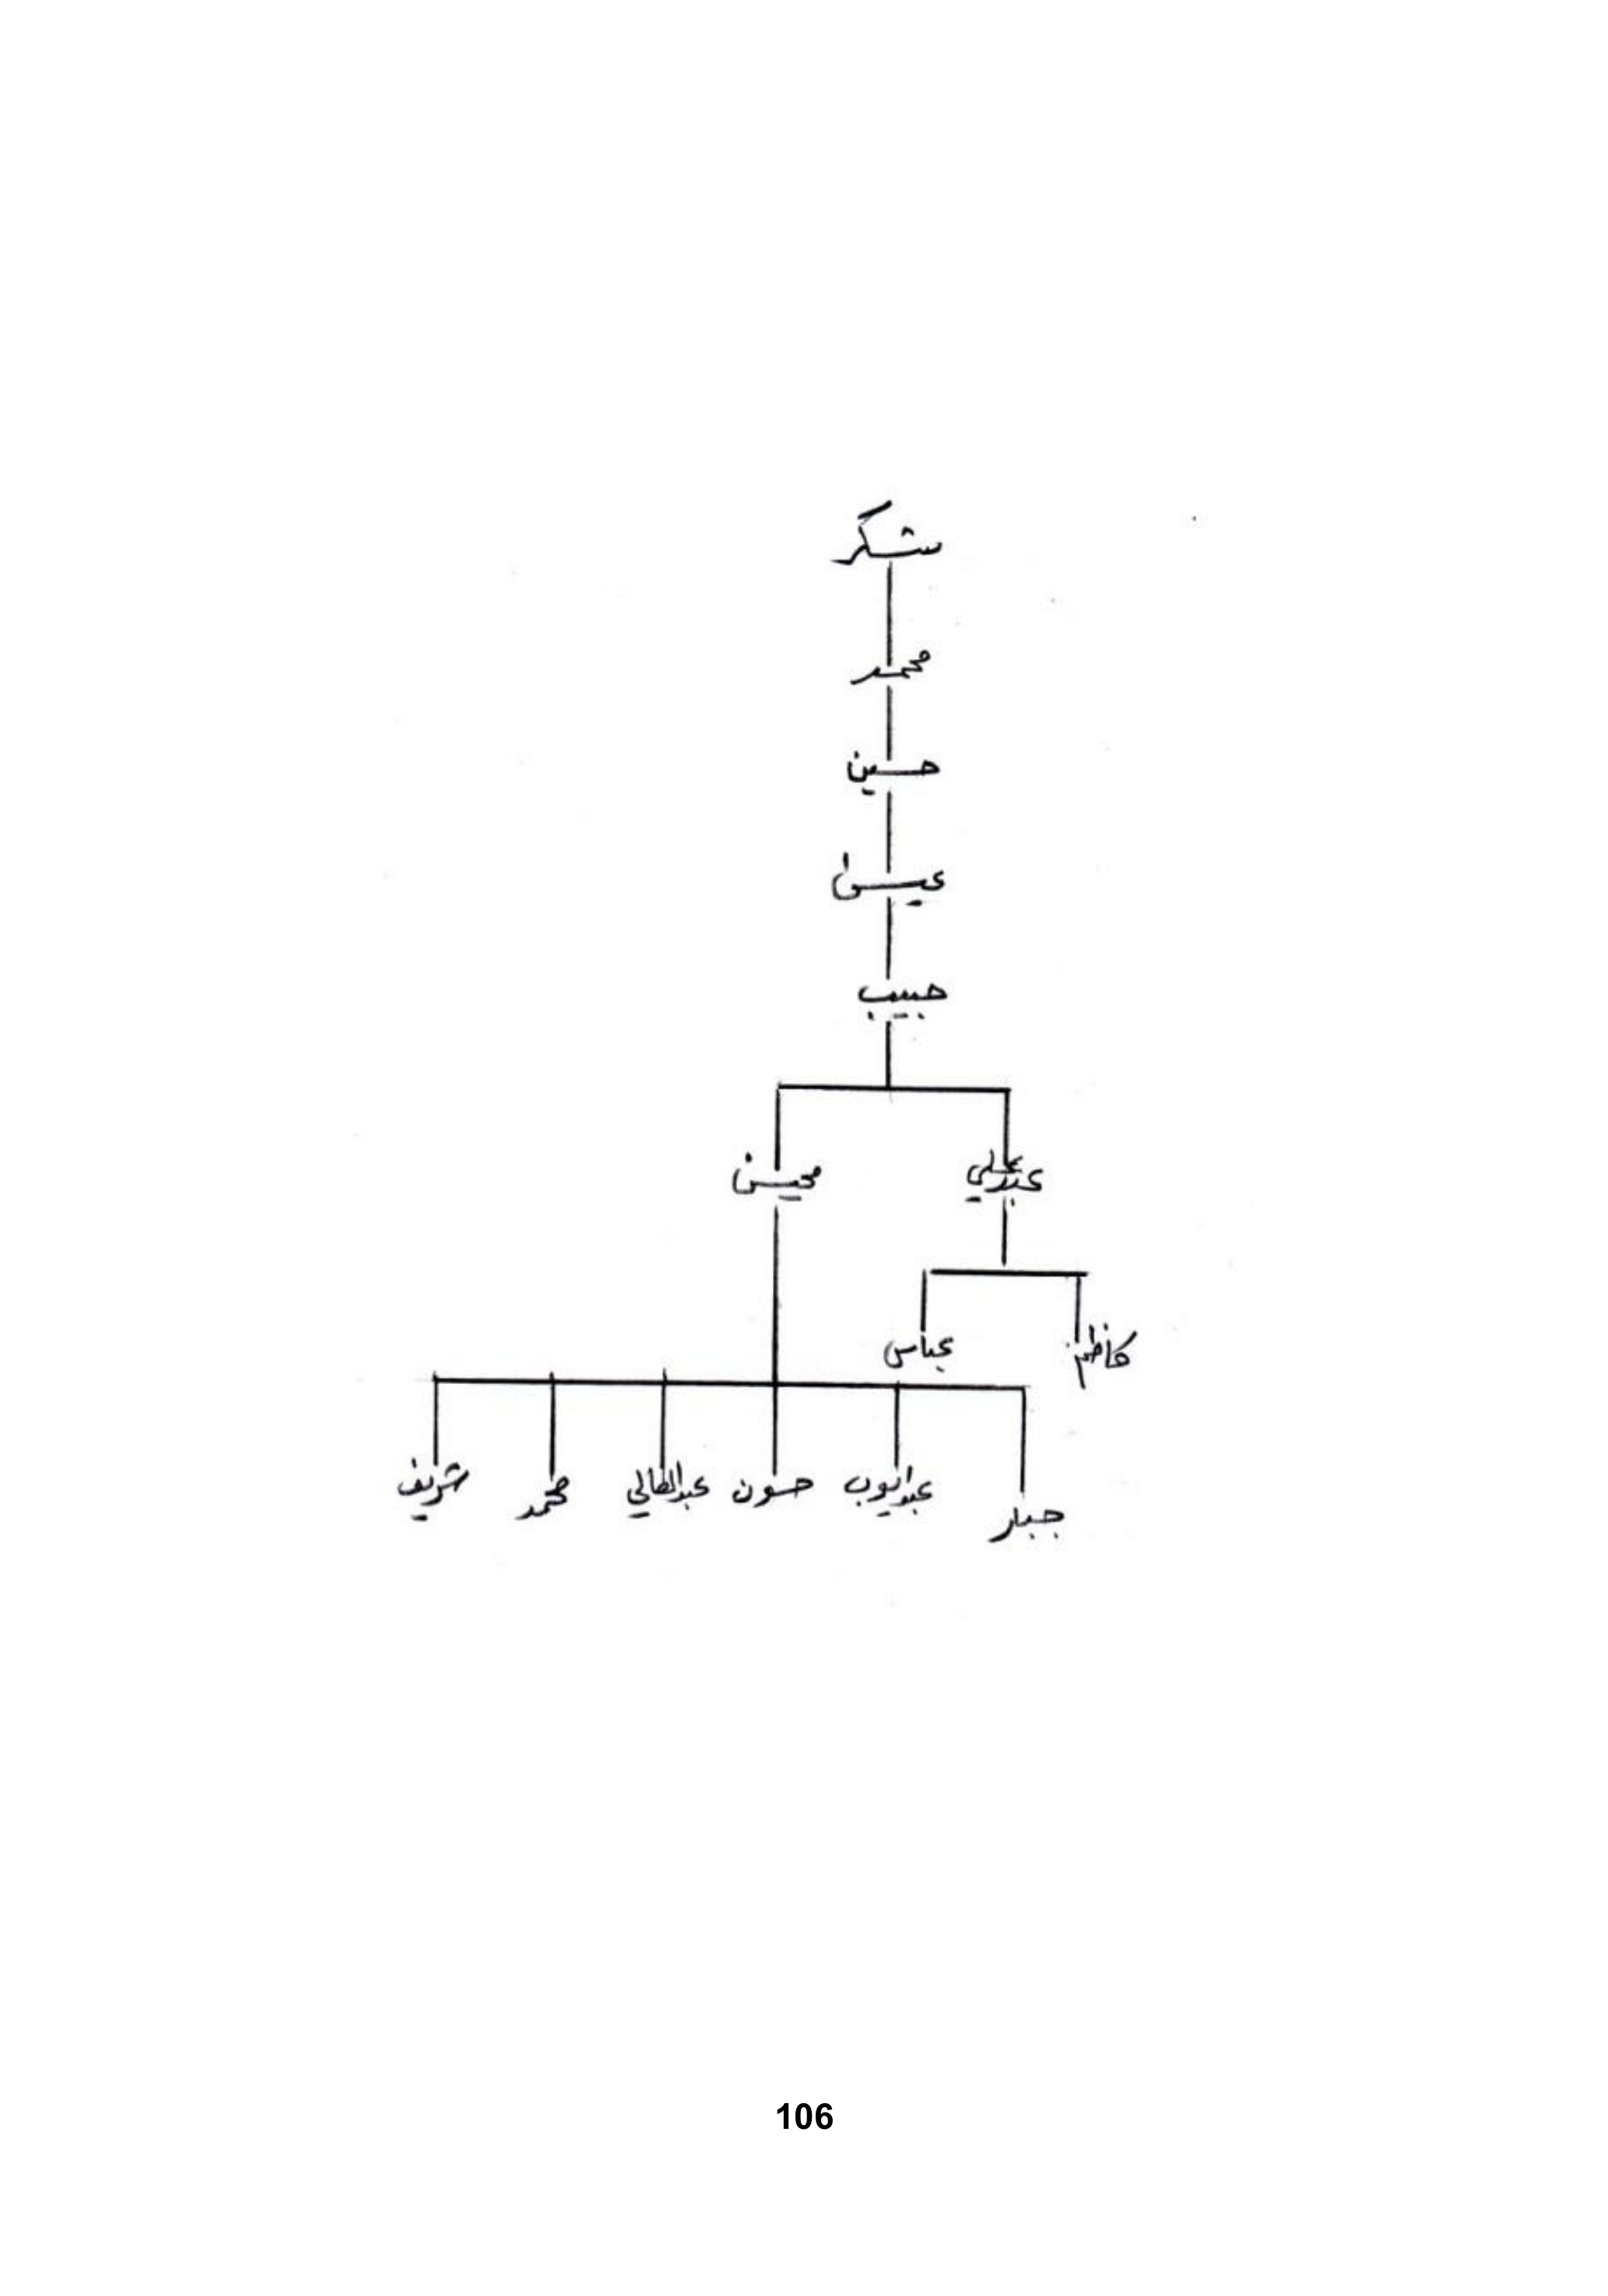 شكر
محمد
حسين
عيسى
حبيب
عبد علي محيسن
كاظم عباس
جبار عبد ايوب حسون محمد شريف
106